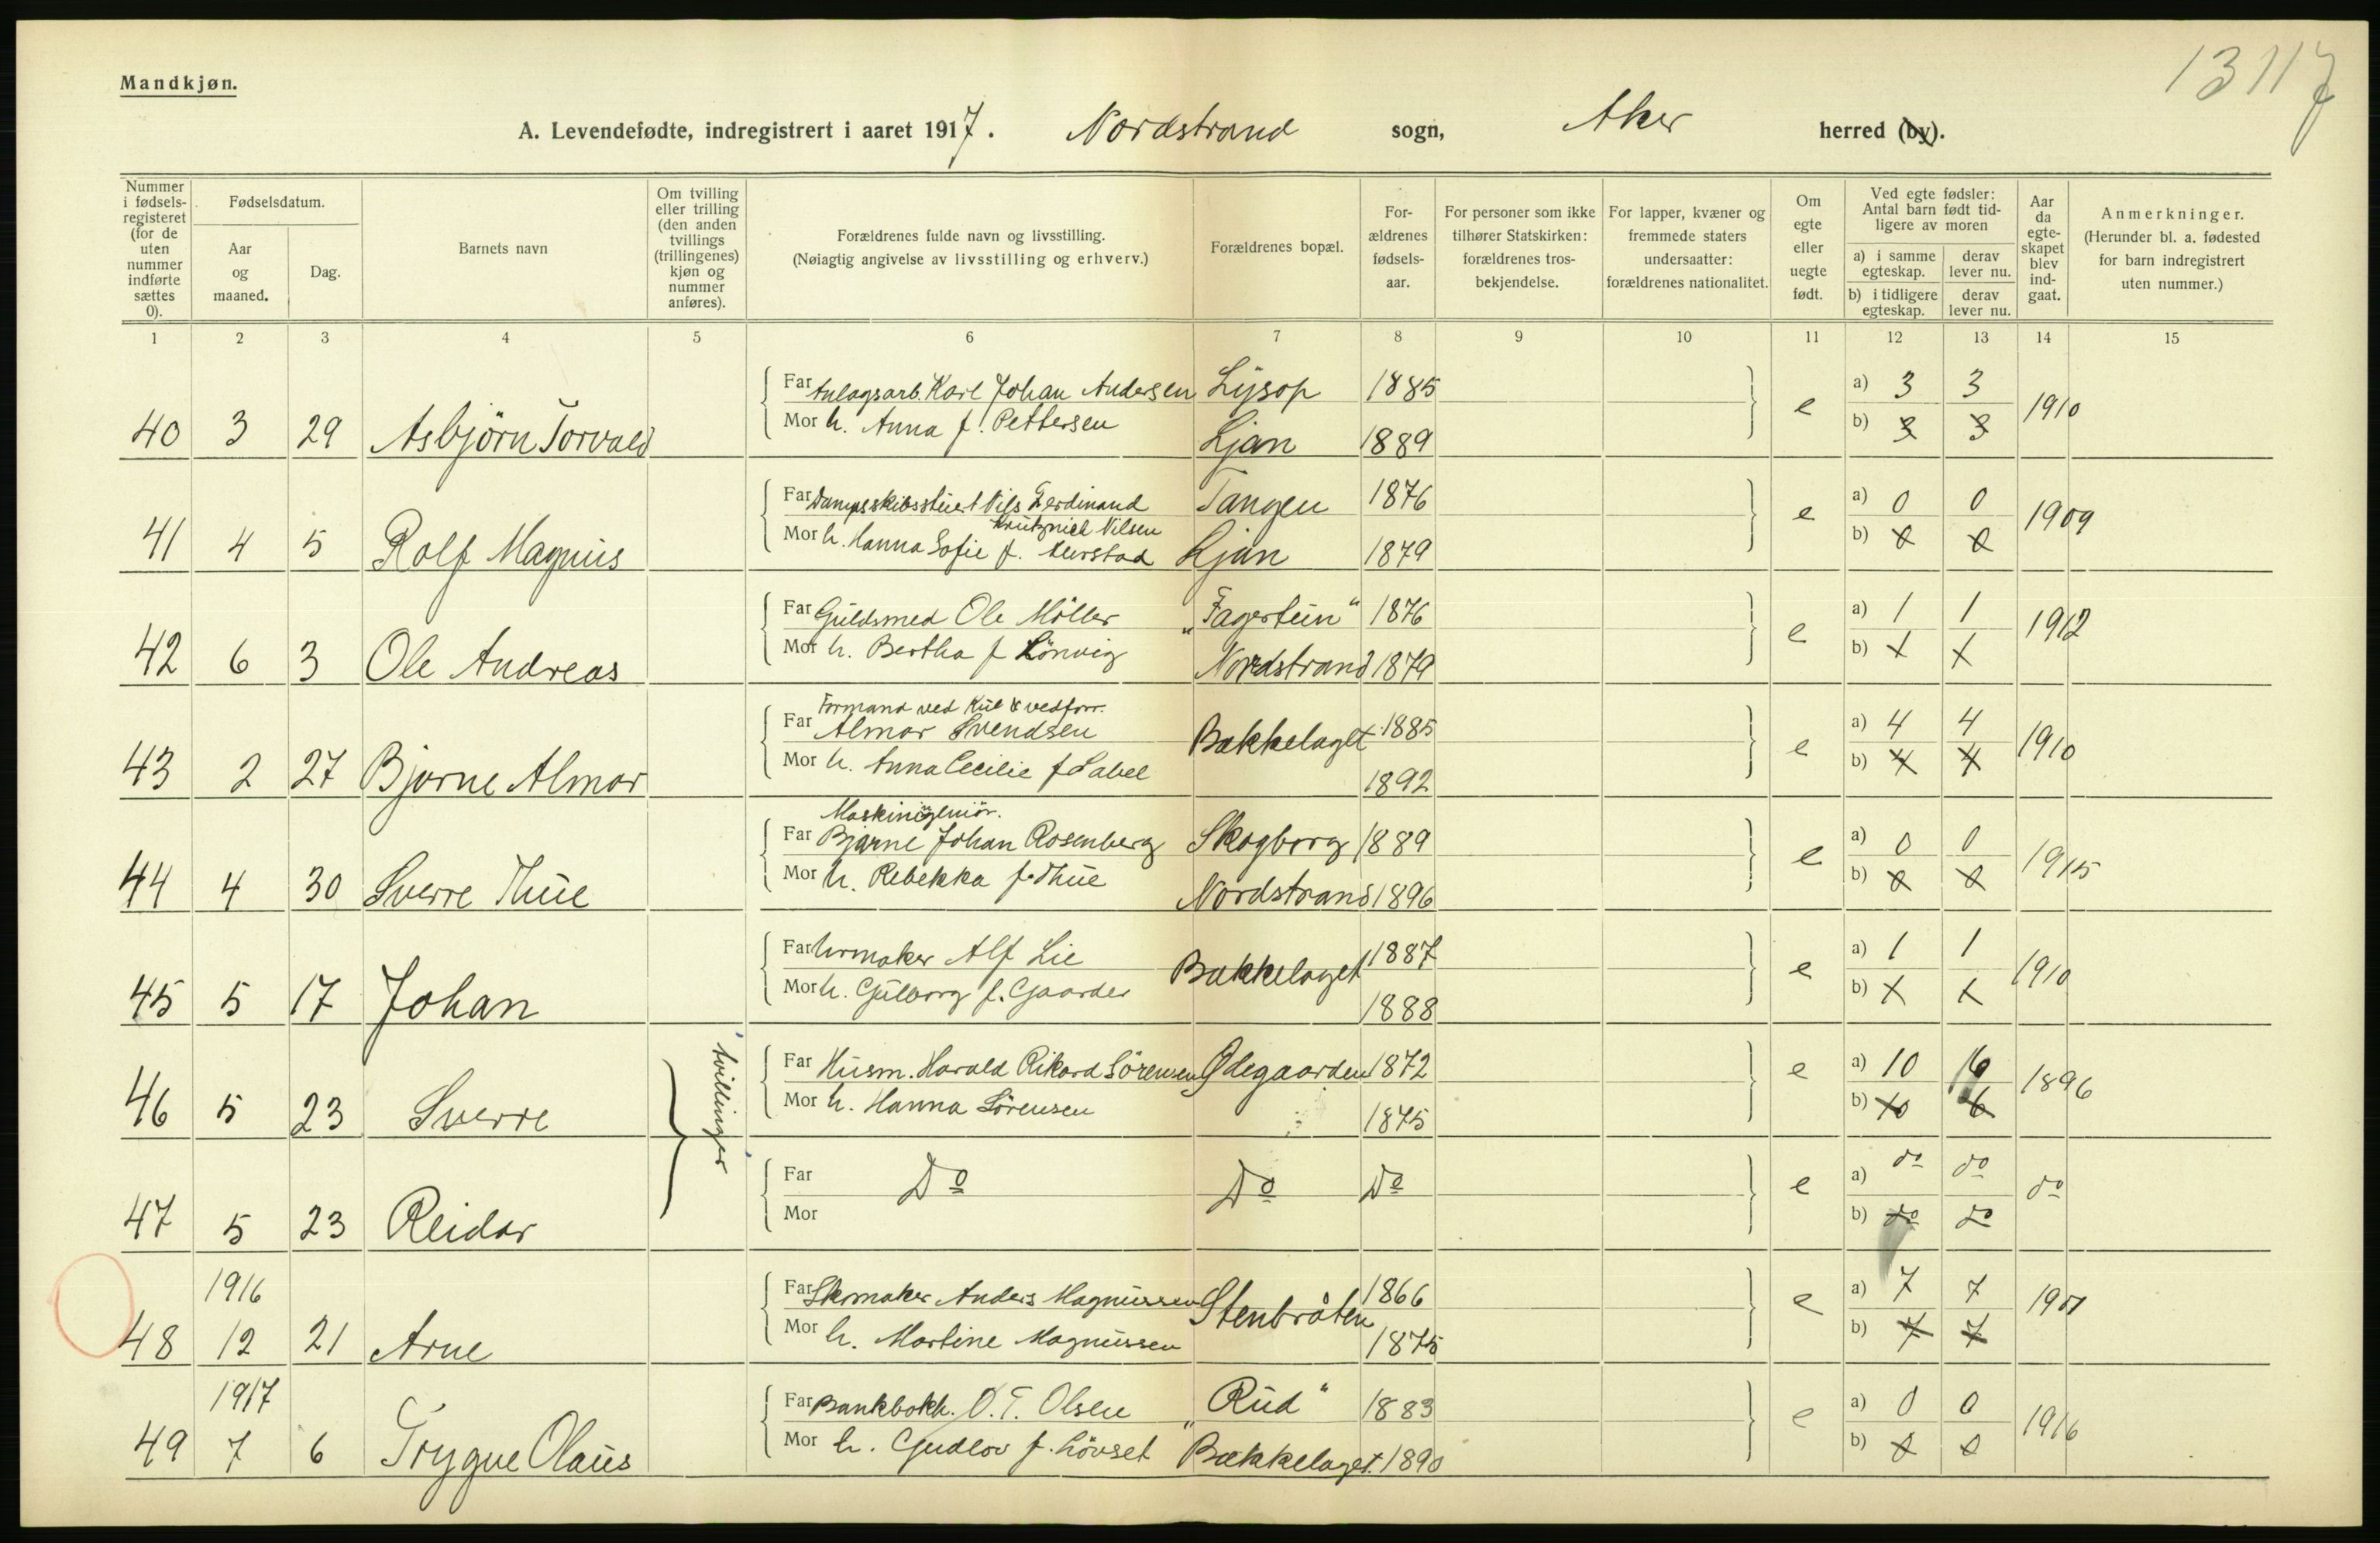 13117
Mandkjøn.
A. Levendefødte, indregistrert i aaret 1917. Nordstrand sogn, Aker herred (by).
Nummer i fødselsregisteret (for de uten nummer indførte sættes 0).
Fødselsdatum.
Aar og maaned.
Dag.
Barnets navn
Om tvilling eller trilling (den anden tvillings (trillingenes) kjøn og nummer anføres).
Forældrenes fulde navn og livsstilling.
(Nøiagtig angivelse av livsstilling og erhverv.)
Forældrenes bopæl.
Forældrenes fødselsaar.
For personer som ikke tilhører Statskirken: forældrenes trosbekjendelse.
For lapper, kvæner og fremmede staters undersaatter: forældrenes nationalitet.
Om egte eller uegte født.
Ved egte fødsler: Antal barn født tidligere av moren
a) i samme egteskap. derav lever nu.
b) i tidligere egteskap. derav lever nu.
Aar da egteskapet blev indgaat.
Anmerkninger.
(Herunder bl. a. fødested for barn indregistrert uten nummer.)
1 2 3 4 5 6 7 8 9 10 11 12 13 14 15
Far Anlagsarb. Karl Johan Andersen Lysop 1885 a) 3 3
40 3 29 Asbjörn Torvald Mor h. Anna f. Pettersen Ljan 1889 e b) 3 3 1910
Far Dampskibsstuert Nils Ferdinand Tangen 1876 a) 0 0
Nilsen
41 4 5 Rolf Magnus Mor h. Hanna Sofie f. Aurstad Ljan 1879 e b) 0 0 1909
Far Guldsmed Ole Möller „Fagertun“ 1876 a) 1 1
42 6 3 Ole Andreas Mor h. Bertha f Lönvig Nordstrand 1879 e b) 1 1 1912
Formand ved Kul & vedforr.
Far Almar Svendsen Bækkelaget 1885 a) 4 4
43 2 27 Bjarne Almar Mor h. Anna Cecilie f Sabel 1892 e b) 4 4 1910
Maskiningeniör.
Far Bjarne Johan Rosenberg Skogborg 1889 a) 0 0
44 4 30 Sverre Thue Mor h. Rebekka f. Thue Nordstrand 1896 e b) 0 0 1915
Far Urmaker Alf Lie Bækkelaget 1887 a) 1 1
45 5 17 Johan Mor h. Gulborg f. Gaarder 1888 e b) 1 1 1910
tvillinger
Far Husm. Harald Rikard Sörensen Ødegaarden 1872 a) 10 6
46 5 23 Sverre Mor h. Hanna Sörensen 1875 e b) 10 6 1896
Far Do Do Do a) do do
47 5 23 Reidar Mor e b) do do do
1916 Far Skomaker Anders Magnussen Stenbråten 1866 a) 7 7
48 12 21 Arne Mor h. Martine Magnussen 1875 e b) 7 7 1901
1917 Far Bankbokh. O. T. Olsen „Rud“ 1883 a) 0 0
49 7 6 Trygve Olaus Mor h. Gudlov f. Lövset Bækkelaget. 1890 e b) 0 0 1916